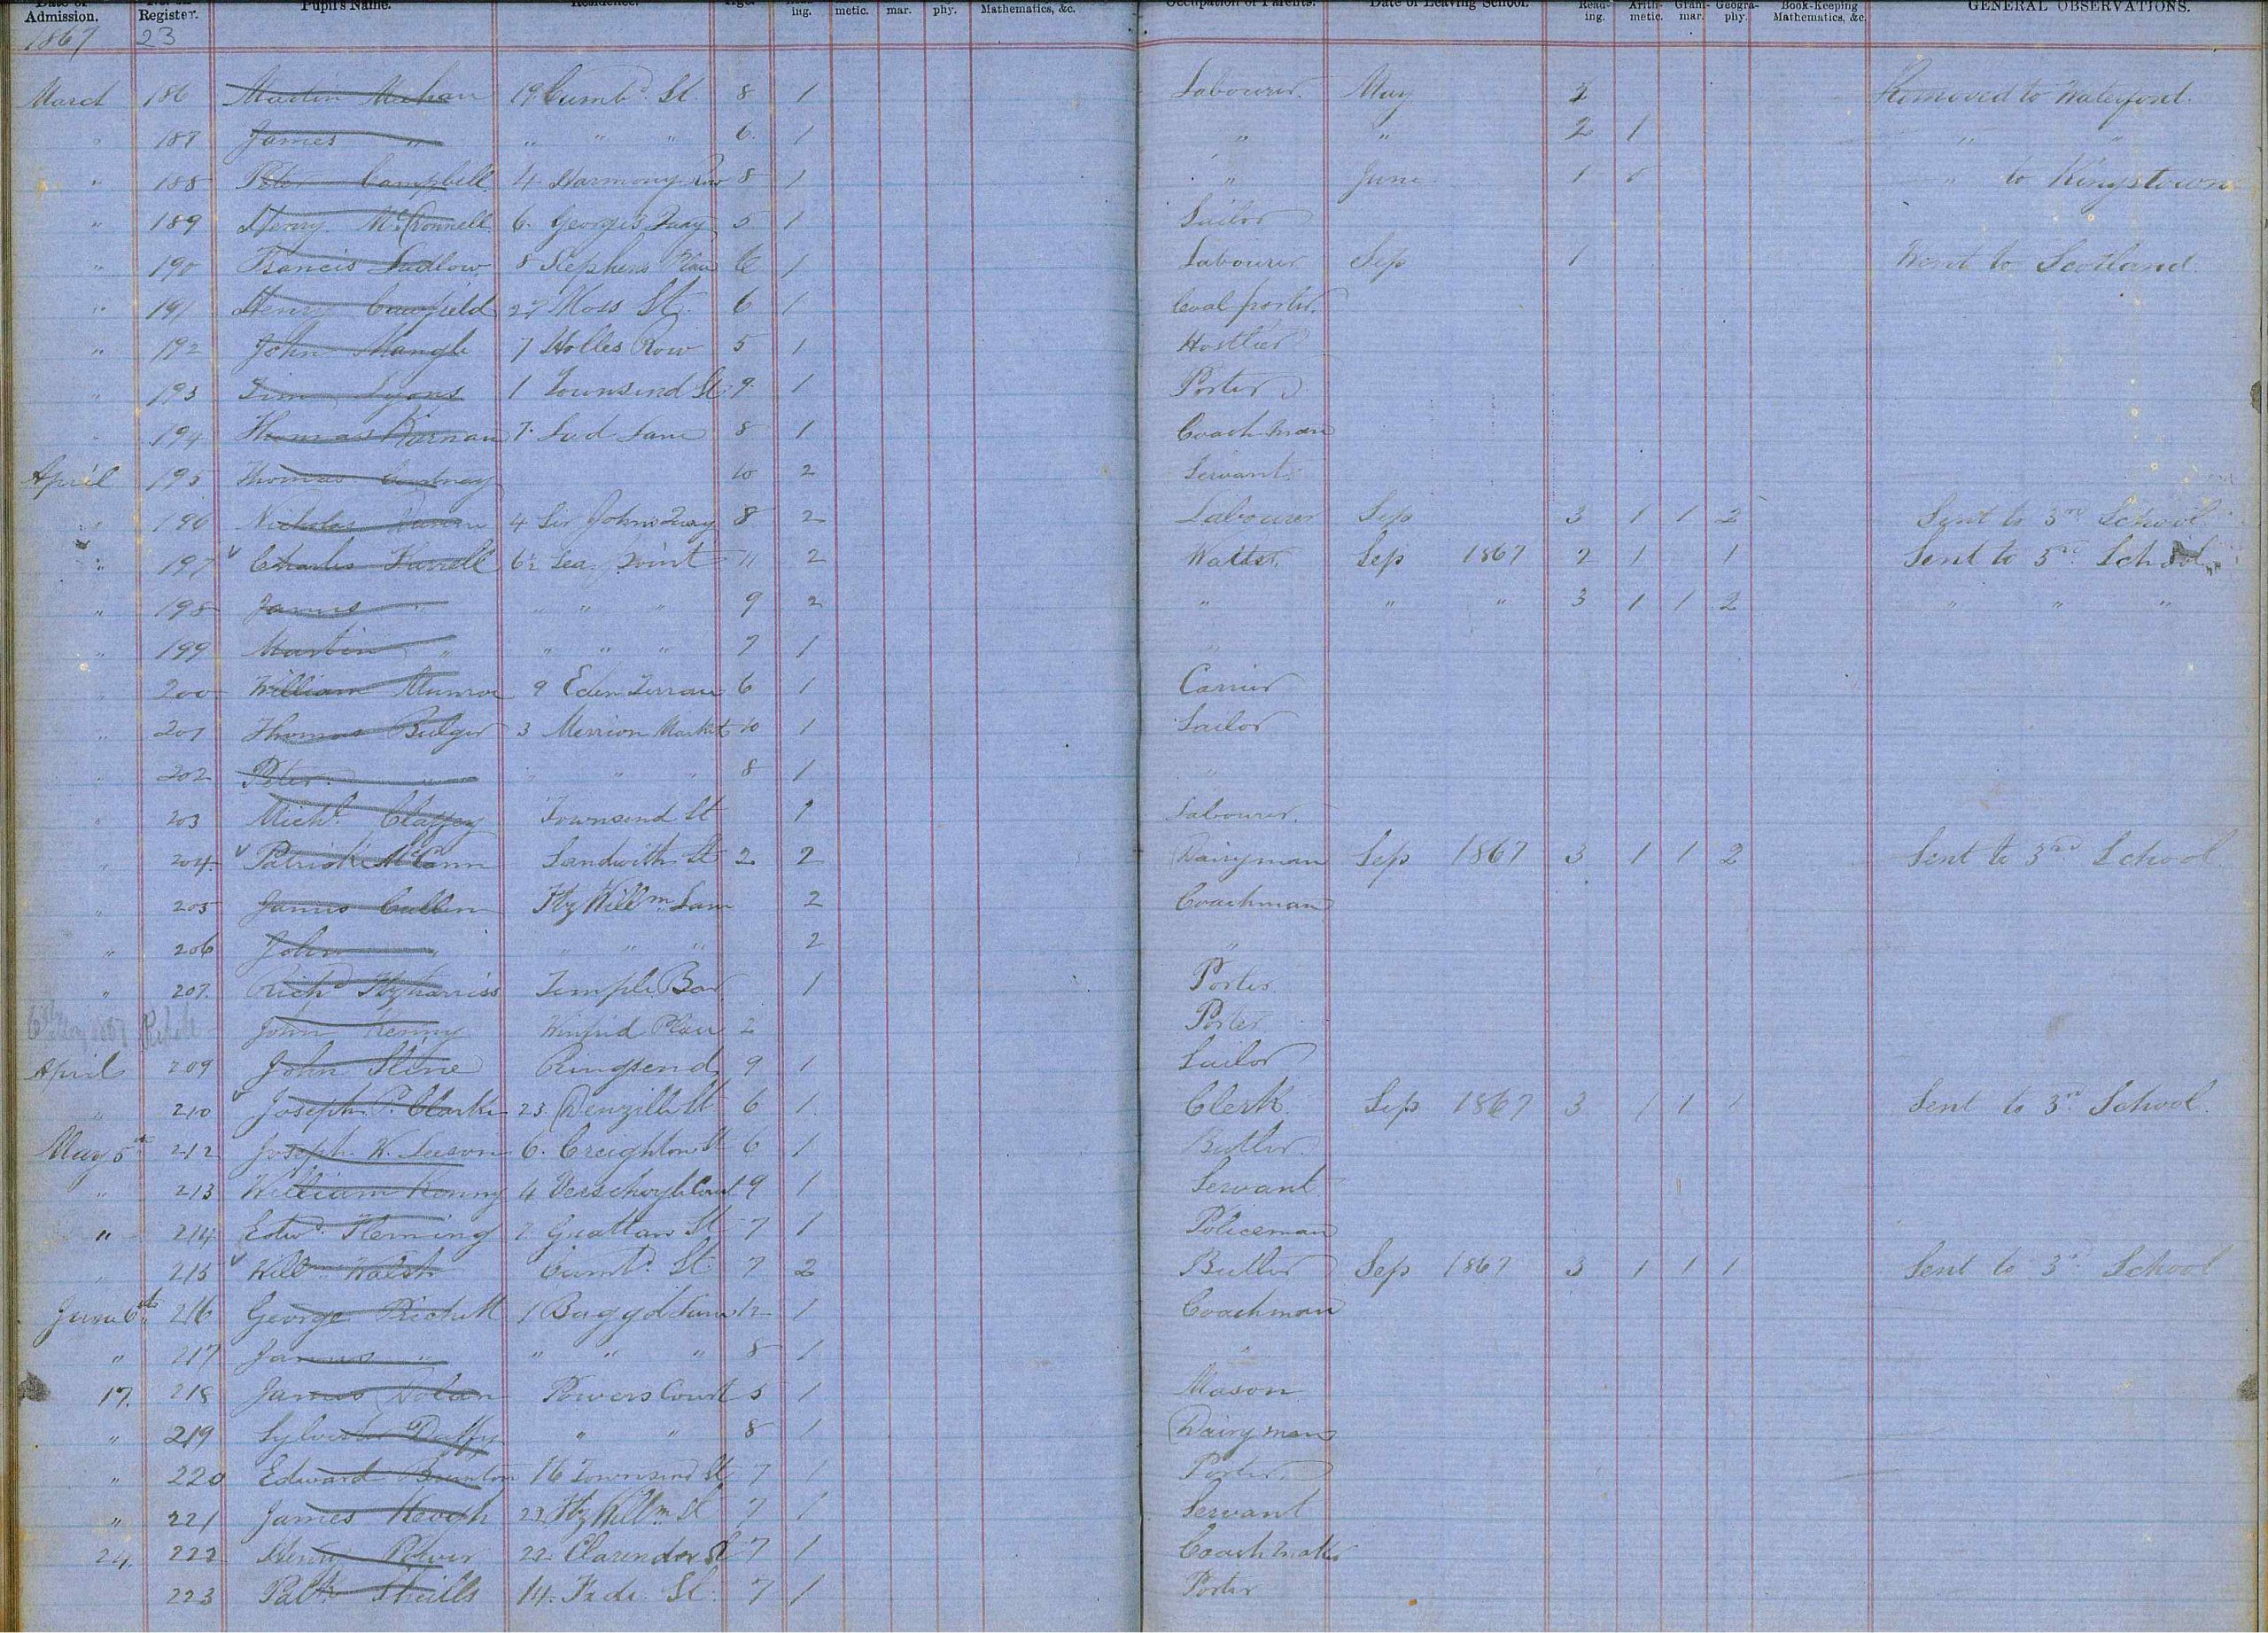 Date of Admission. No. in Register. Pupil's Name. Residence. Age. Reading. metic. mar. phy. Mathematics, &c. Occupation of Parents. Date of Leaving School. Reading. Arithmetic. Grammar. Geography. Book-Keeping Mathematics, &c. GENERAL OBSERVATIONS.
1867 23
March 186 Martin Meehan 19 Cumbd. St. 8 1 Labourer. May 2 Removed to Waterford.
" 187 James " " " " 6. 1 " " 2 1 " "
" 188 Peter Campbell 4 Harmony Row 8 1 " June 1 " to Kingstown
" 189 Henry McConnell 6. George's Quay 5 1 Sailor
" 190 Francis Ludlow 8 Stephens Place 6 1 Labourer Sep 1 Went to Scotland.
" 191 Henry 27 Moss St. 6 1 Coal porter.
" 192 John Mangle 7 Holles Row 5 1 Hostler
" 193 Tim Lyons 1 Townsend St 9 1 Porter
" 194 Thomas 7. Lad Lane 8 1 Coachman
April 195 Thomas Courtney 10 2 Servant
" 196 Nicholas 4 Sir Johns Quay 8 2 Labourer Sep 3 1 1 2 Sent to 3rd School
" 197 Charles Farrell 62 Sea Point 11 2 Waiter. Sep 1867 2 1 1 Sent to 3rd School
" 198 James " " " " 9 2 " " " 3 1 1 2 " " "
" 199 Martin " " " " 7 1 "
" 200 William Munroe 9 Eden Terrace 6 1 Carrier
" 201 Thomas Bulger 3 Merrion Market 10 1 Sailor
" 202 Peter " " " " 8 1 "
" 203 Michl. Claffey Townsend St 1 Labourer.
" 204 Patrick McCann Sandwith St 2 2 Dairyman Sep 1867 3 1 1 2 Sent to 3rd School
" 205 James Cullen Fitz Willm Lane 2 Coachman
" 206 John " " " " 2 "
" 207. Richd Fitzharriss Temple Bar 1 Porter
6th May 1887 John Kenny Winifrid Place 2 Porter
April 209 John Stine Ringsend 9 1 Sailor
" 210 Joseph P. Clarke 23 Denzille St 6 1 Clerk. Sep 1867 3 1 1 1 Sent to 3rd School.
May 5th 212 Joseph W. Leeson 6. Creighton St 6 1 Butler.
" 213 William Kenny 4 Verschoyle Court 9 1 Servant
" 214 Edwd. Fleming 7 Grattan St 7 1 Policeman
" 215 Willm Walsh Cumbd. St. 7 2 Butler Sep 1867 3 1 1 1 Sent to 3rd School
June 6th 216 George Pickett 1 Baggot Lane 12 1 Coachman
" 217 James " " " " 8 1 "
17. 218 James Dolan Powers Court 5 1 Mason
" 219 Sylvester Duffy " " 8 1 Dairyman
" 220 Edward Brunton 16 Townsend St 7 1 Porter.
" 221 James Keogh 23 Fitz Willm St 7 1 Servant
24. 222 Henry Power 22 Clarendon St 7 1 Coachmaker
223 Patk. Skills 14. Fredk. St. 7 1 Porter